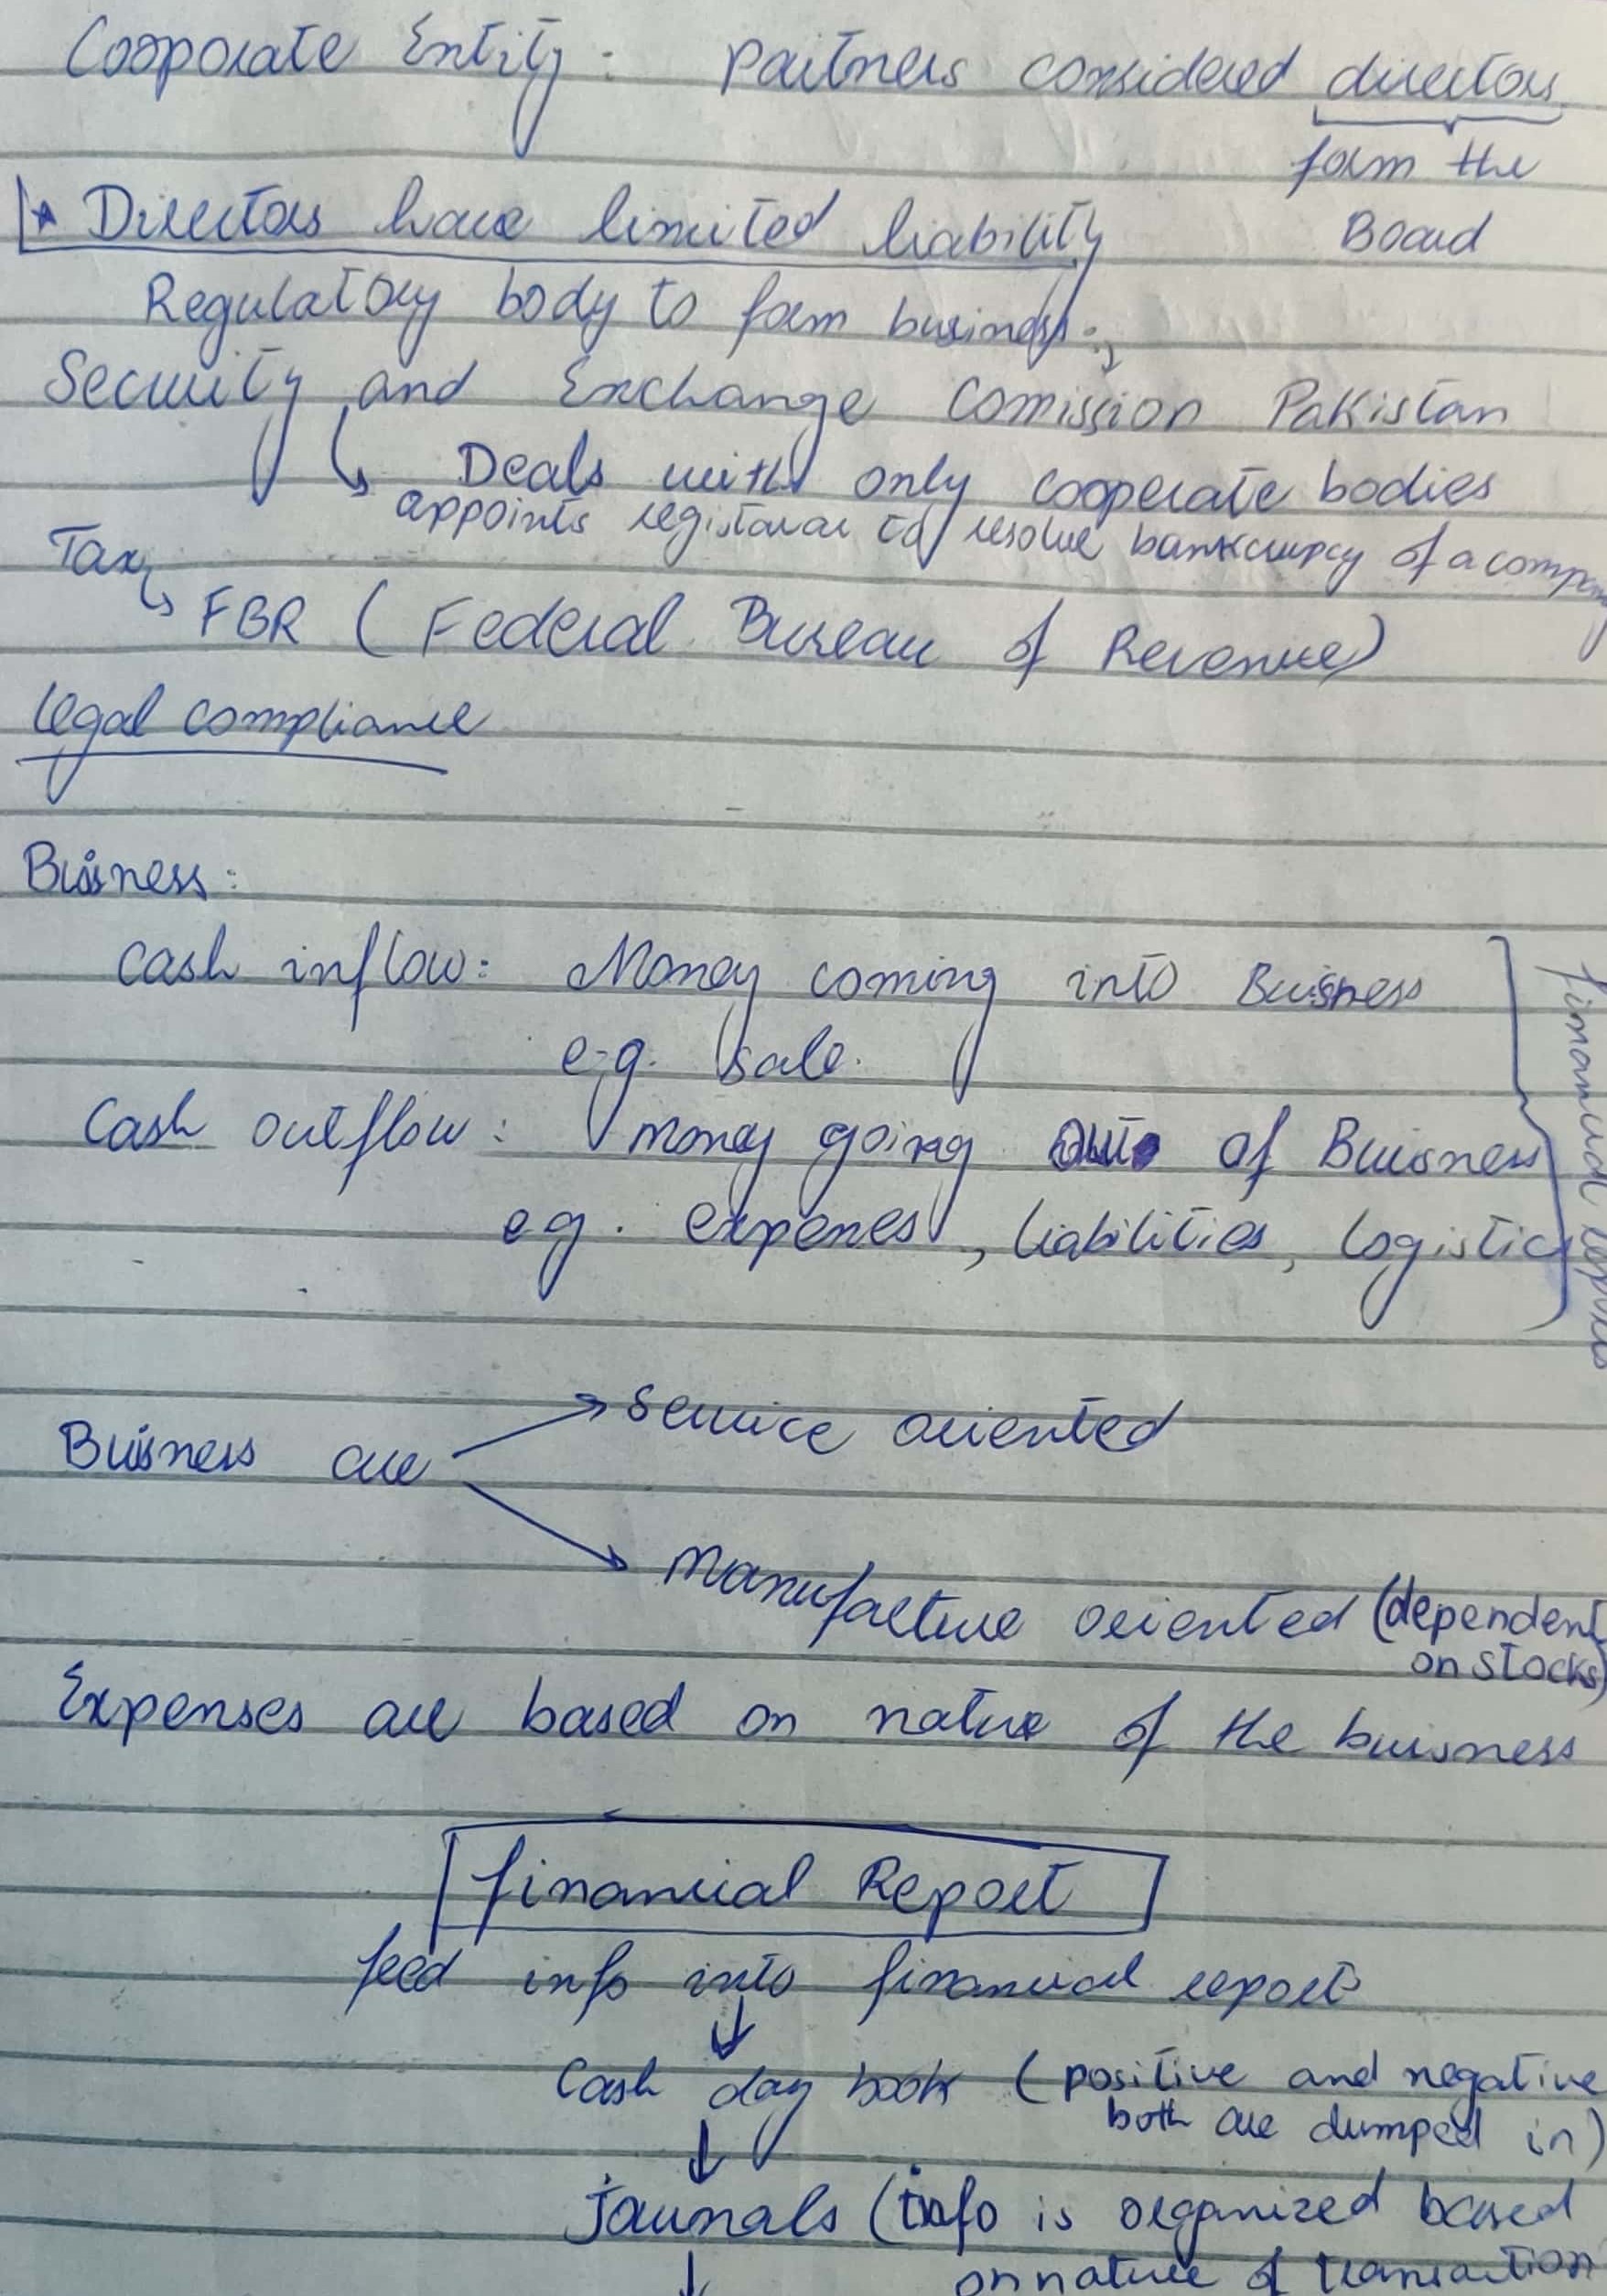 Cooporate Entity : Partners considered directors
form the
Board
* Directors have limited liability
Regulatory body to form business:
Security and Exchange Comission Pakistan
Deals with only cooperate bodies
appoints registarar to resolve bankcurpcy of a company
Tax
FBR (Federal Bureau of Revenue)
legal compliance
Buisness:
Cash inflow: Money coming into Buisness
e.g. sale.
Cash outflow: money going out of Buisness
eg. expenes, liabilities, logistics
financial reports
Buisness are
service oriented
manufacture oriented (dependent
on stocks)
Expenses are based on nature of the buisness
financial Report
feed info into financial report
Cash day book (positive and negative
both are dumped in)
journals (info is organized based
on nature of transaction